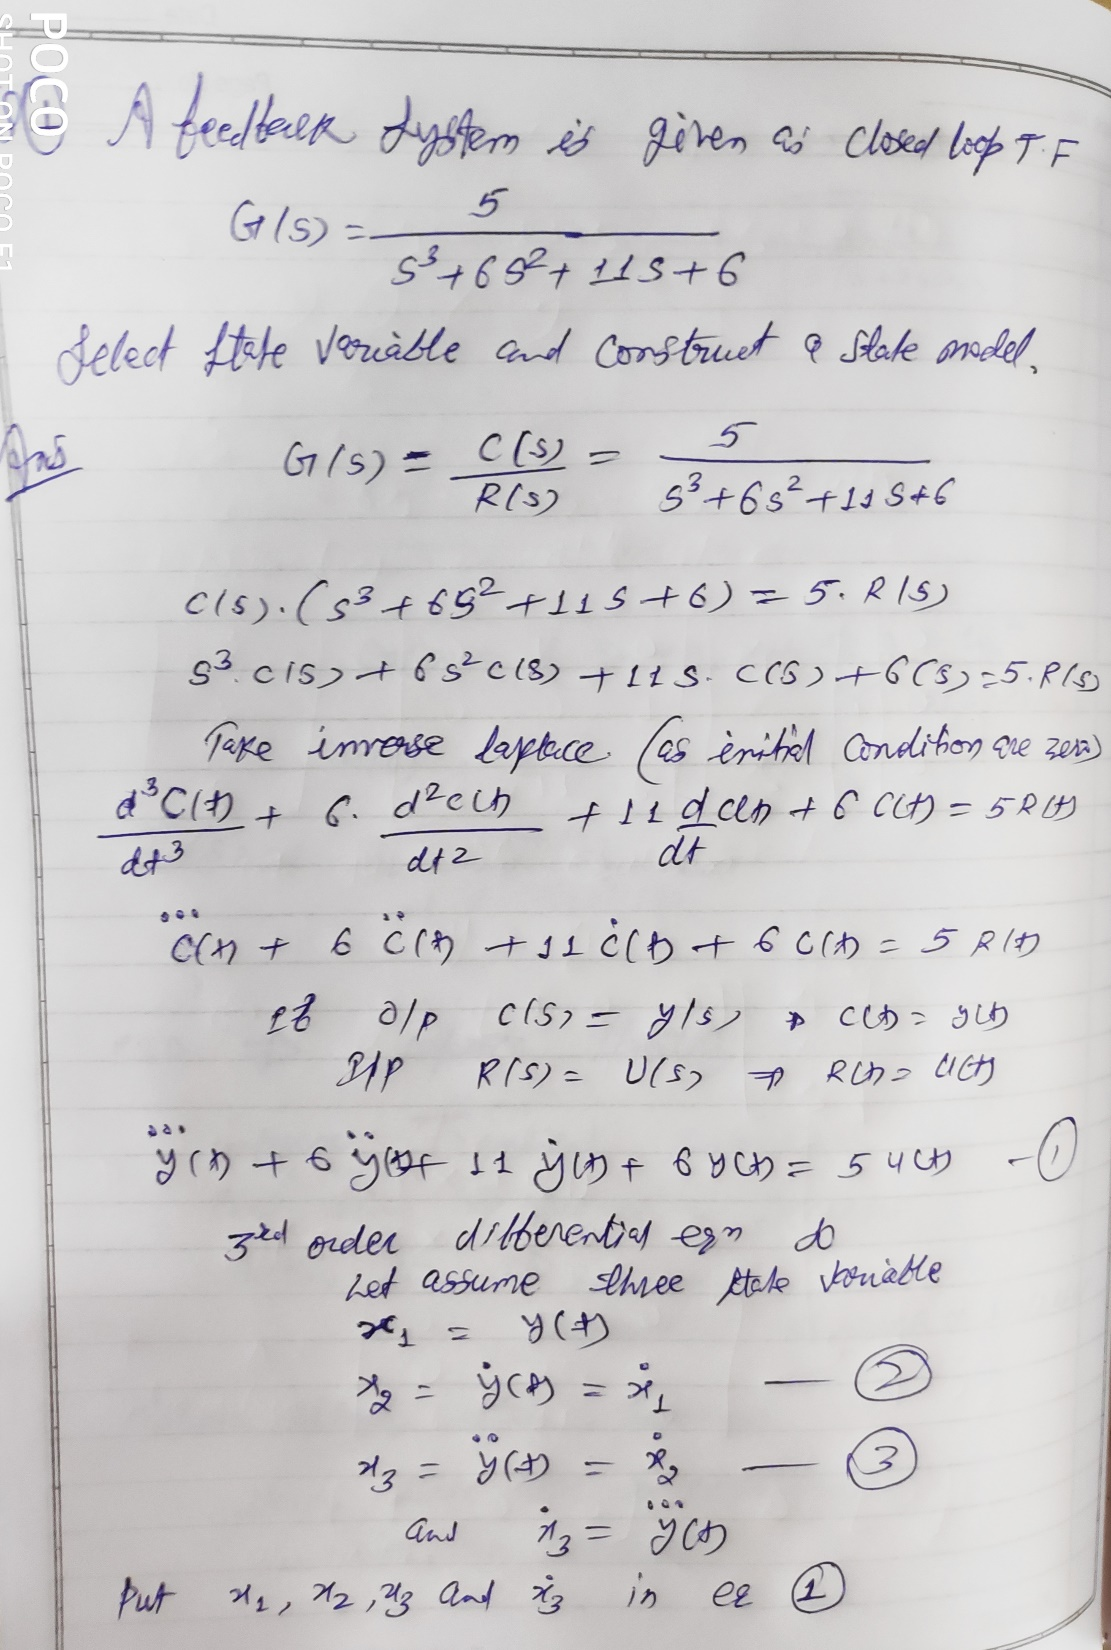 POCO
SHOT ON POCO F1
A feedback System is given as Closed loop T.F
G(s) = 5 / s³+6s²+11s+6
Select State Variable and Construct a State model.
Ans
G(s) = C(s)/R(s) = 5 / s³+6s²+11s+6
C(s).(s³+6s²+11s+6) = 5.R(s)
s³.C(s) + 6s²C(s) + 11s.C(s) + 6(s) = 5.R(s)
Take inverse laplace (as initial Condition are zero)
d³C(t)/dt³ + 6. d²c(t)/dt² + 11 d/dt c(t) + 6 C(t) = 5R(t)
C⃛(t) + 6 C̈(t) + 11 Ċ(t) + 6 C(t) = 5 R(t)
If O/P C(s) = y(s) ⇒ C(t) = y(t)
I/P R(s) = U(s) ⇒ R(t) = U(t)
y⃛(t) + 6 ÿ(t) + 11 ẏ(t) + 6 y(t) = 5 u(t) - ①
3rd order differential eqn so
Let assume three state variable
x₁ = y(t)
x₂ = ẏ(t) = ẋ₁ — ②
x₃ = ÿ(t) = ẋ₂ — ③
and ẋ₃ = y⃛(t)
Put x₁, x₂, x₃ and ẋ₃ in eq ①